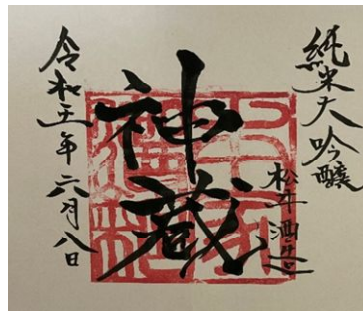 純米大吟醸
松井酒造
神蔵
令和五年六月八日